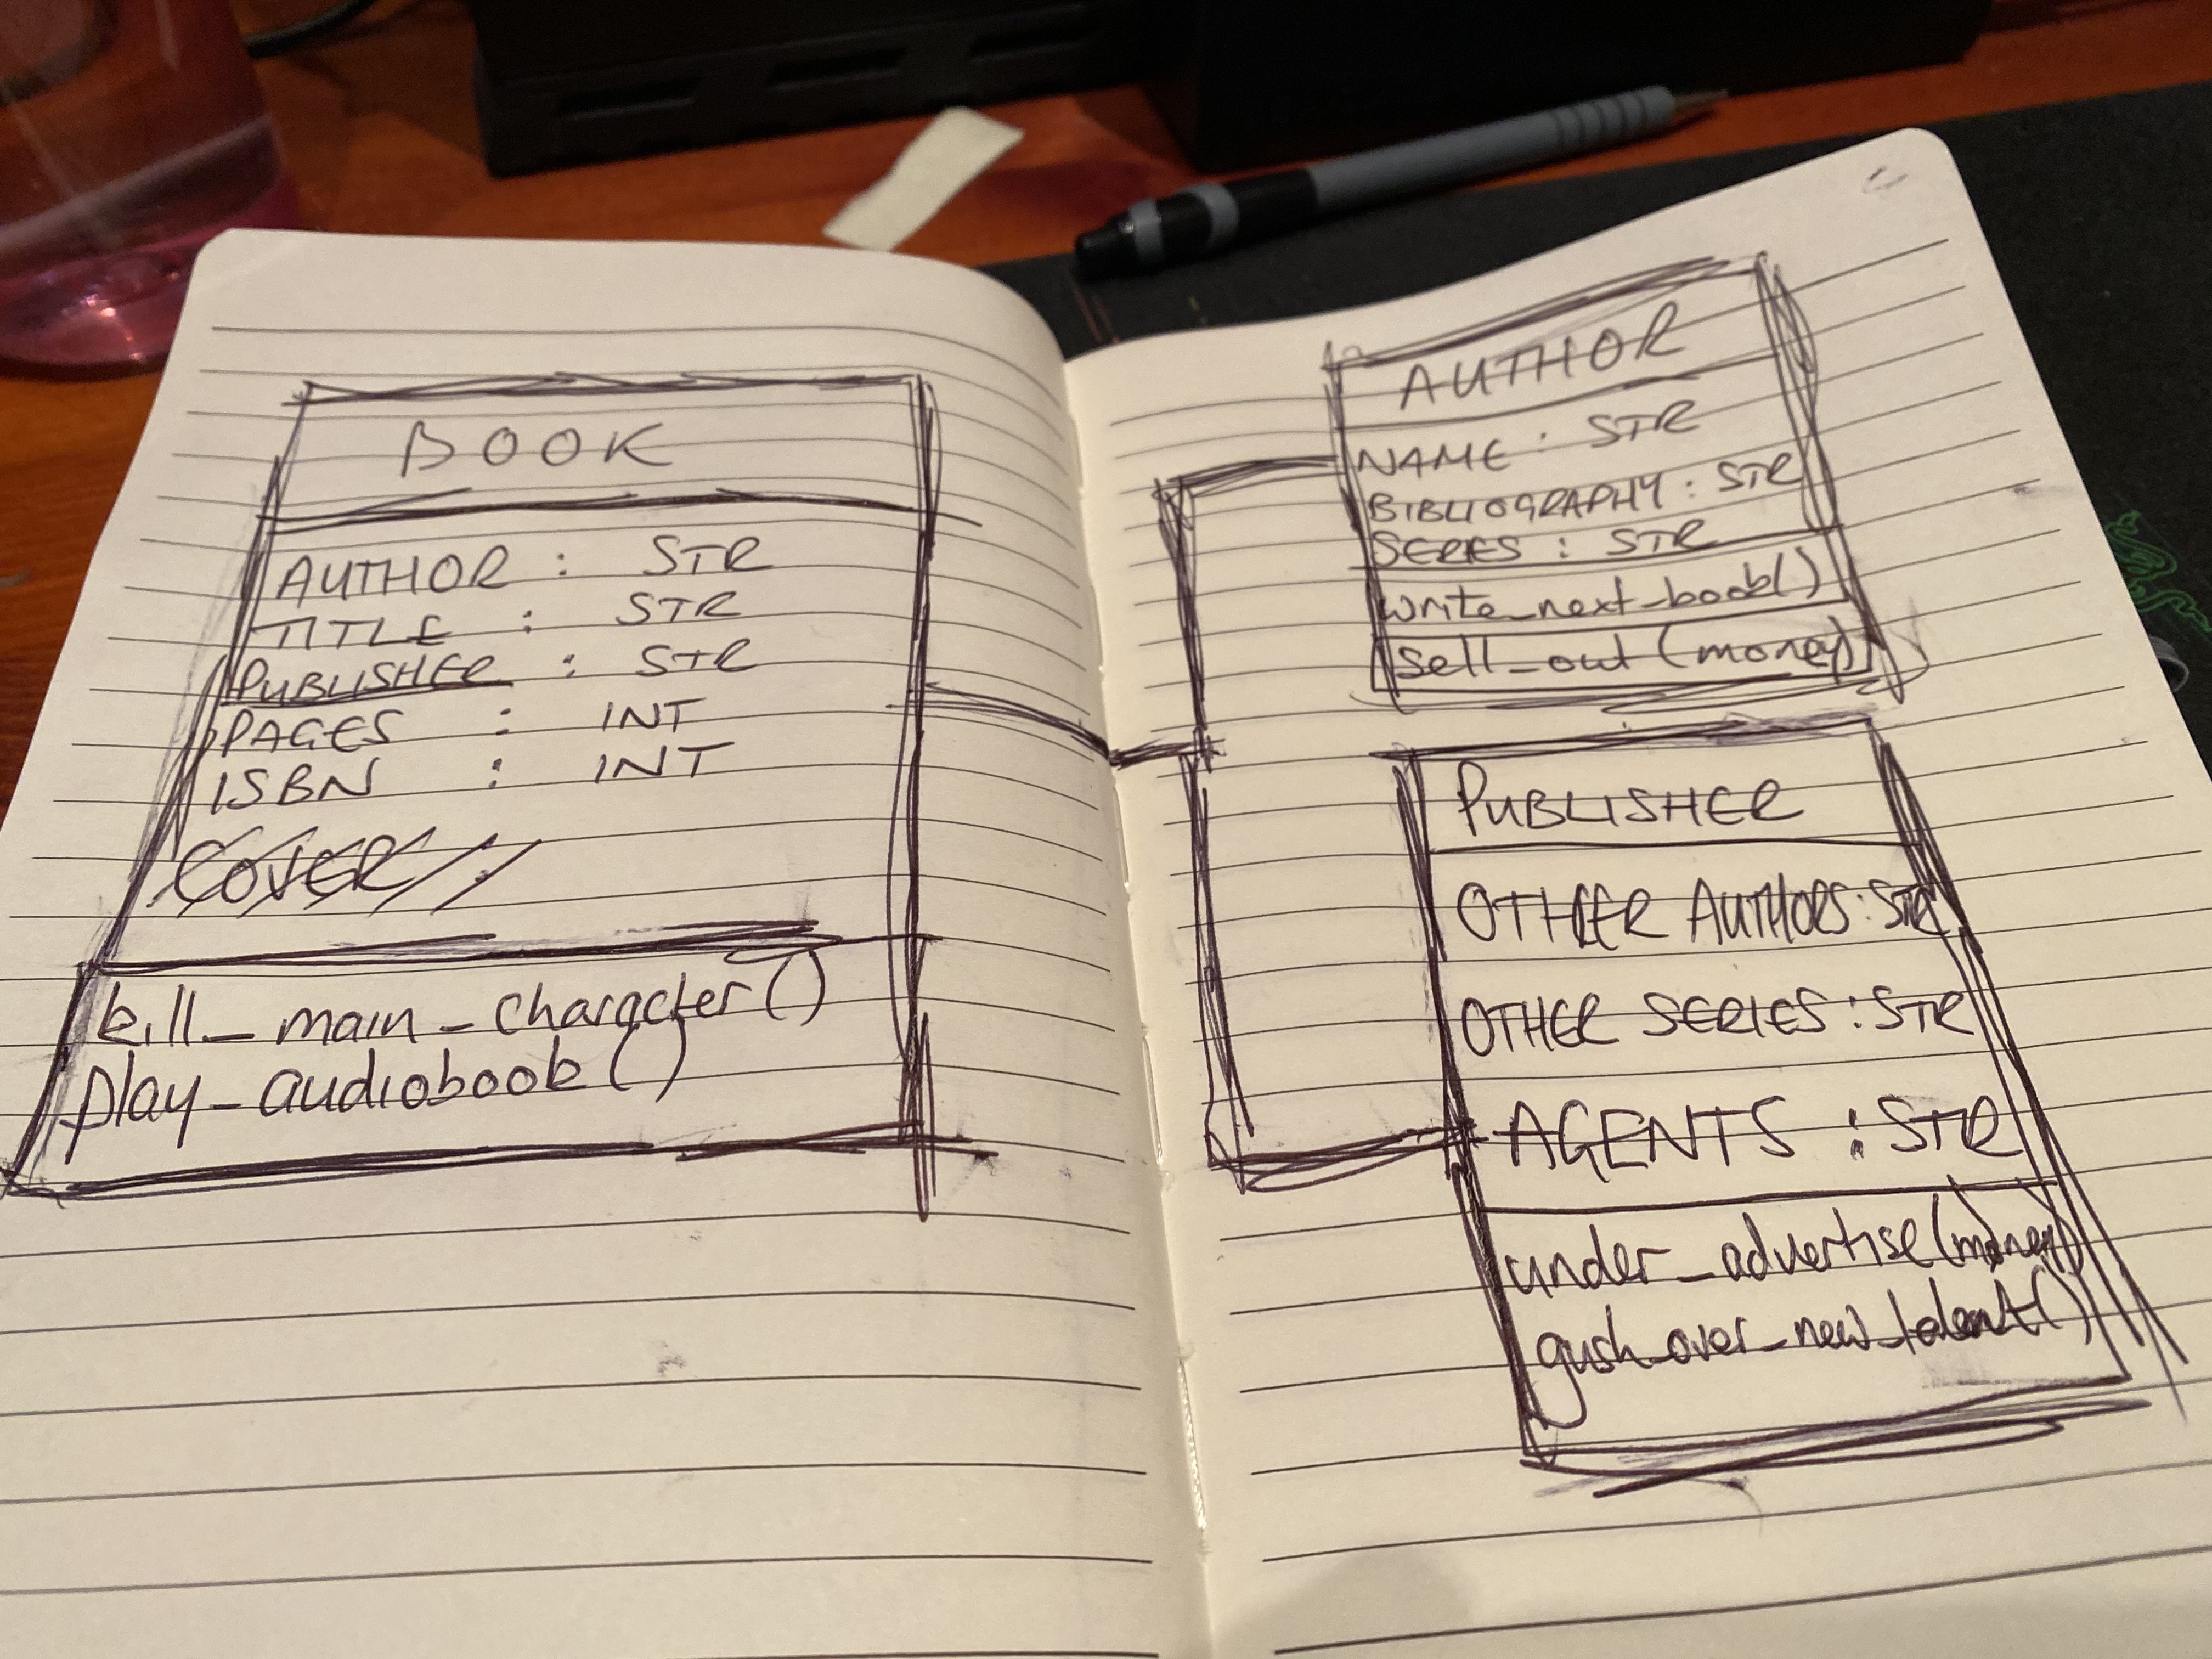 BOOK
AUTHOR : STR
TITLE : STR
PUBLISHER : STR
PAGES : INT
ISBN : INT
COVER :
kill_main_character()
play_audiobook()
AUTHOR
NAME : STR
BIBLIOGRAPHY : STR
SERIES : STR
write_next_book()
sell_out(money)
PUBLISHER
OTHER AUTHORS : STR
OTHER SERIES : STR
AGENTS : STR
under_advertise(money)
gush_over_new_talent()